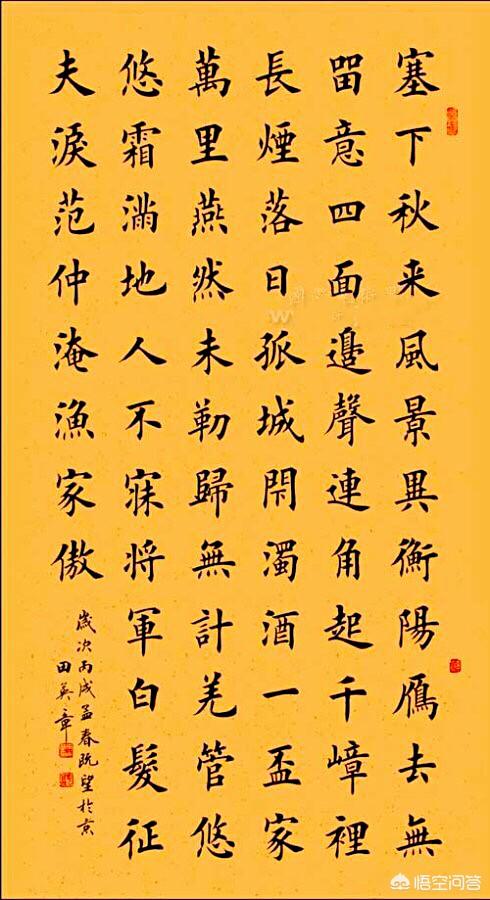 塞下秋来風景異衡陽鴈去無
留意四面邊聲連角起千嶂裡
長煙落日孤城閇濁酒一盃家
萬里燕然未勒歸無計羌管悠
悠霜滿地人不寐將軍白髮征
夫淚范仲淹漁家傲
歲次丙戌孟春既望於京
田英章
悟空问答